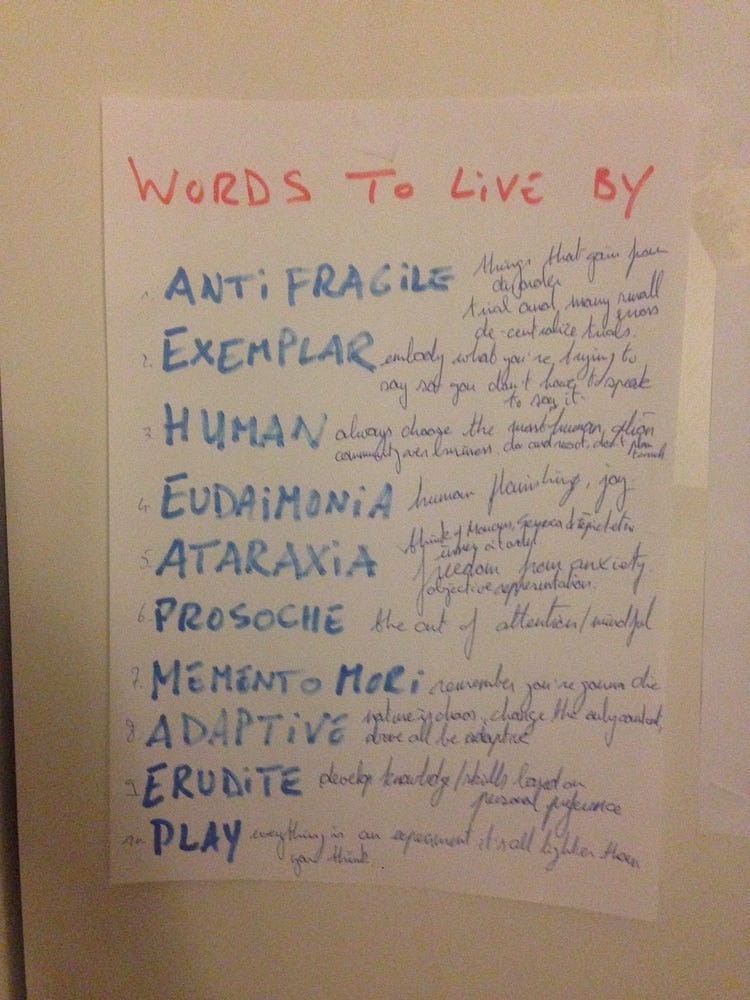 WORDS TO LIVE BY
1. ANTIFRAGILE things that gain from
disorder
trial and many small
errors
de-centralize trials.
2. EXEMPLAR embody what you're trying to
say so you don't have to speak
to say it.
3. HUMAN always choose the most human option
community over business. do and react, don't plan
4. EUDAIMONIA human flourishing, joy.
5. ATARAXIA think of Marcus, Seneca & Epictetus
freedom from anxiety.
objective representation.
6. PROSOCHE the art of attention/mindful
7. MEMENTO MORI remember you're gonna die
8. ADAPTIVE nature is chaos, change the only constant,
above all be adaptive
9. ERUDITE develop knowledge/skills based on
personal preference
10. PLAY everything is an experiment it's all lighter than
you think.